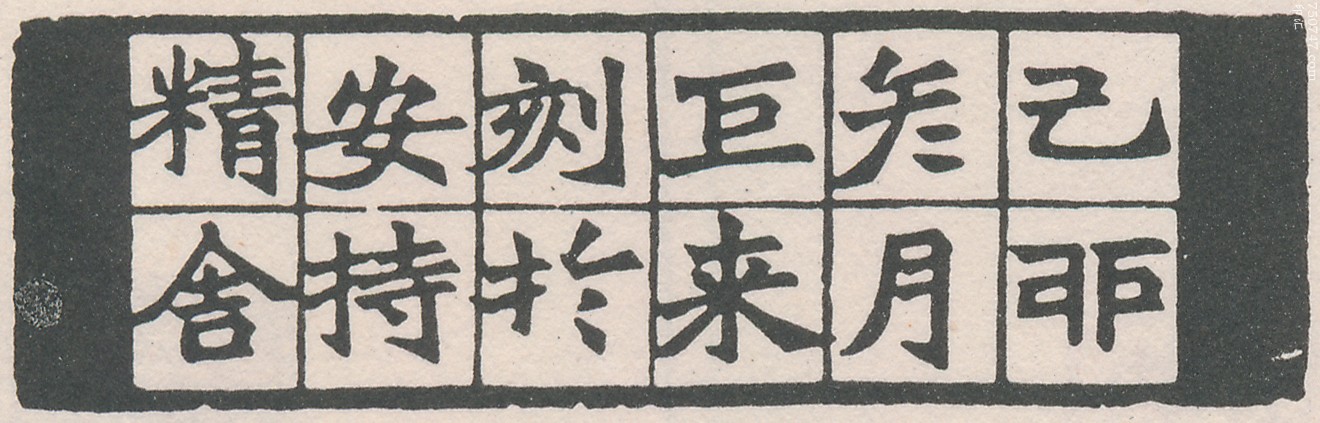 己卯
冬月
巨来
刻於
安持
精舍